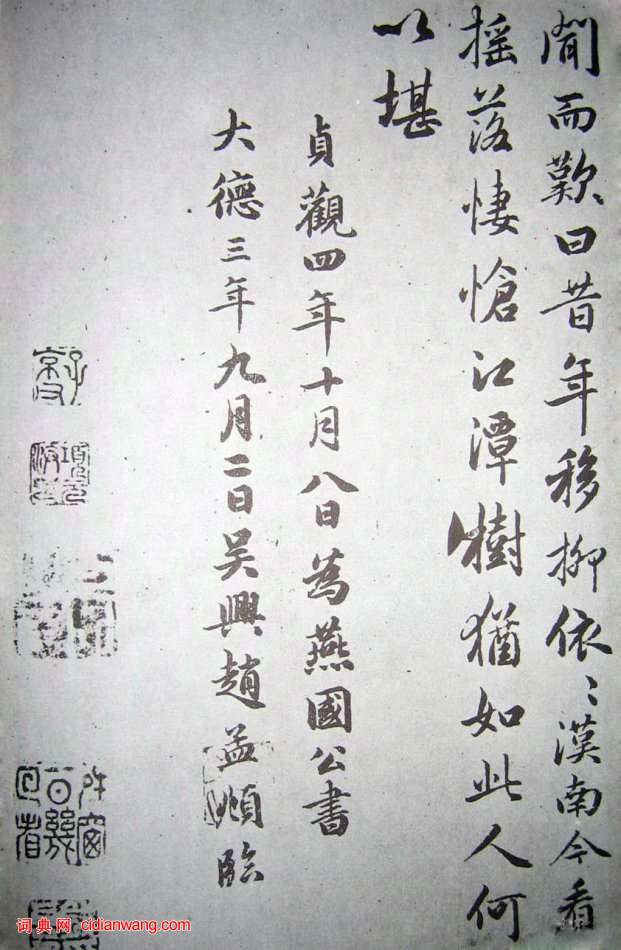 聞而歎曰昔年移柳依〻漢南今看
搖落悽愴江潭樹猶如此人何
以堪
貞觀四年十月八日為燕國公書
大德三年九月二日吴興趙孟頫臨
词典网 cidianwang.com